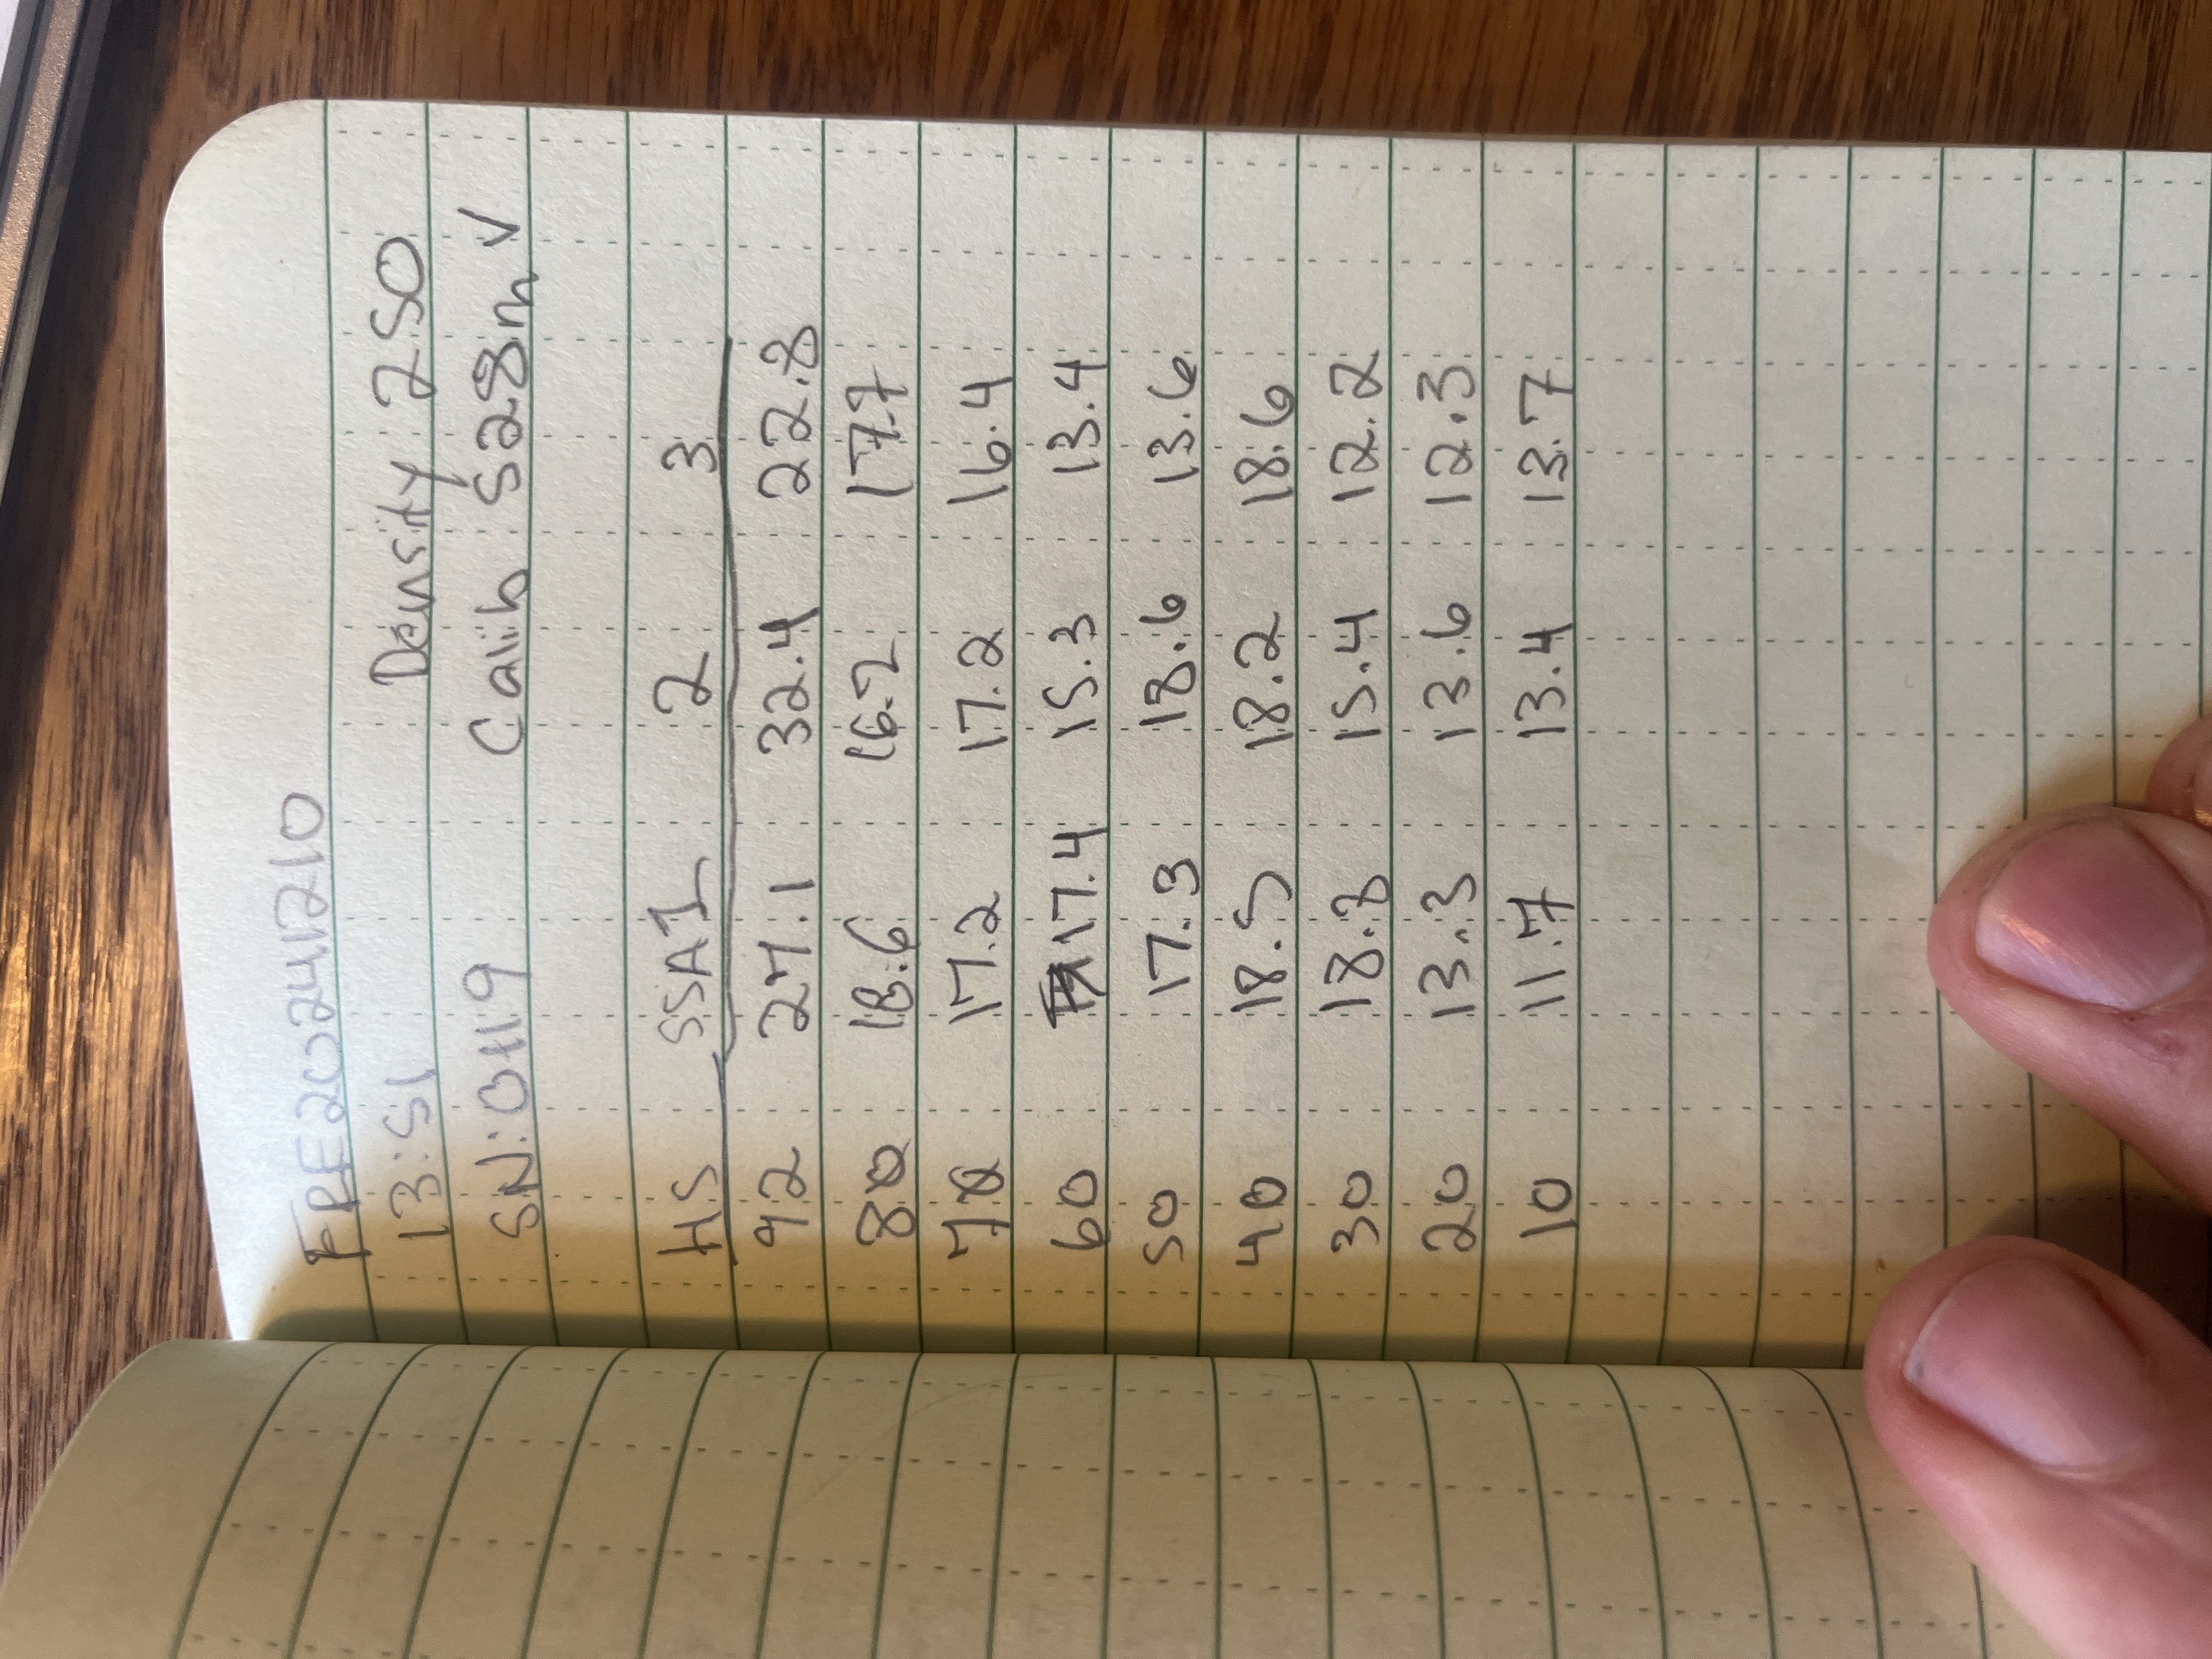 FRE20241210
13:51 Density: 250
SN:0119 Calib: 528mV
HS SSA1 2 3
92 27.1 32.4 22.8
80 18.6 16.2 17.7
70 17.2 17.2 16.4
60 17.4 15.3 13.4
50 17.3 18.6 13.6
40 18.5 18.2 18.6
30 18.8 15.4 12.2
20 13.3 13.6 12.3
10 11.7 13.4 13.7